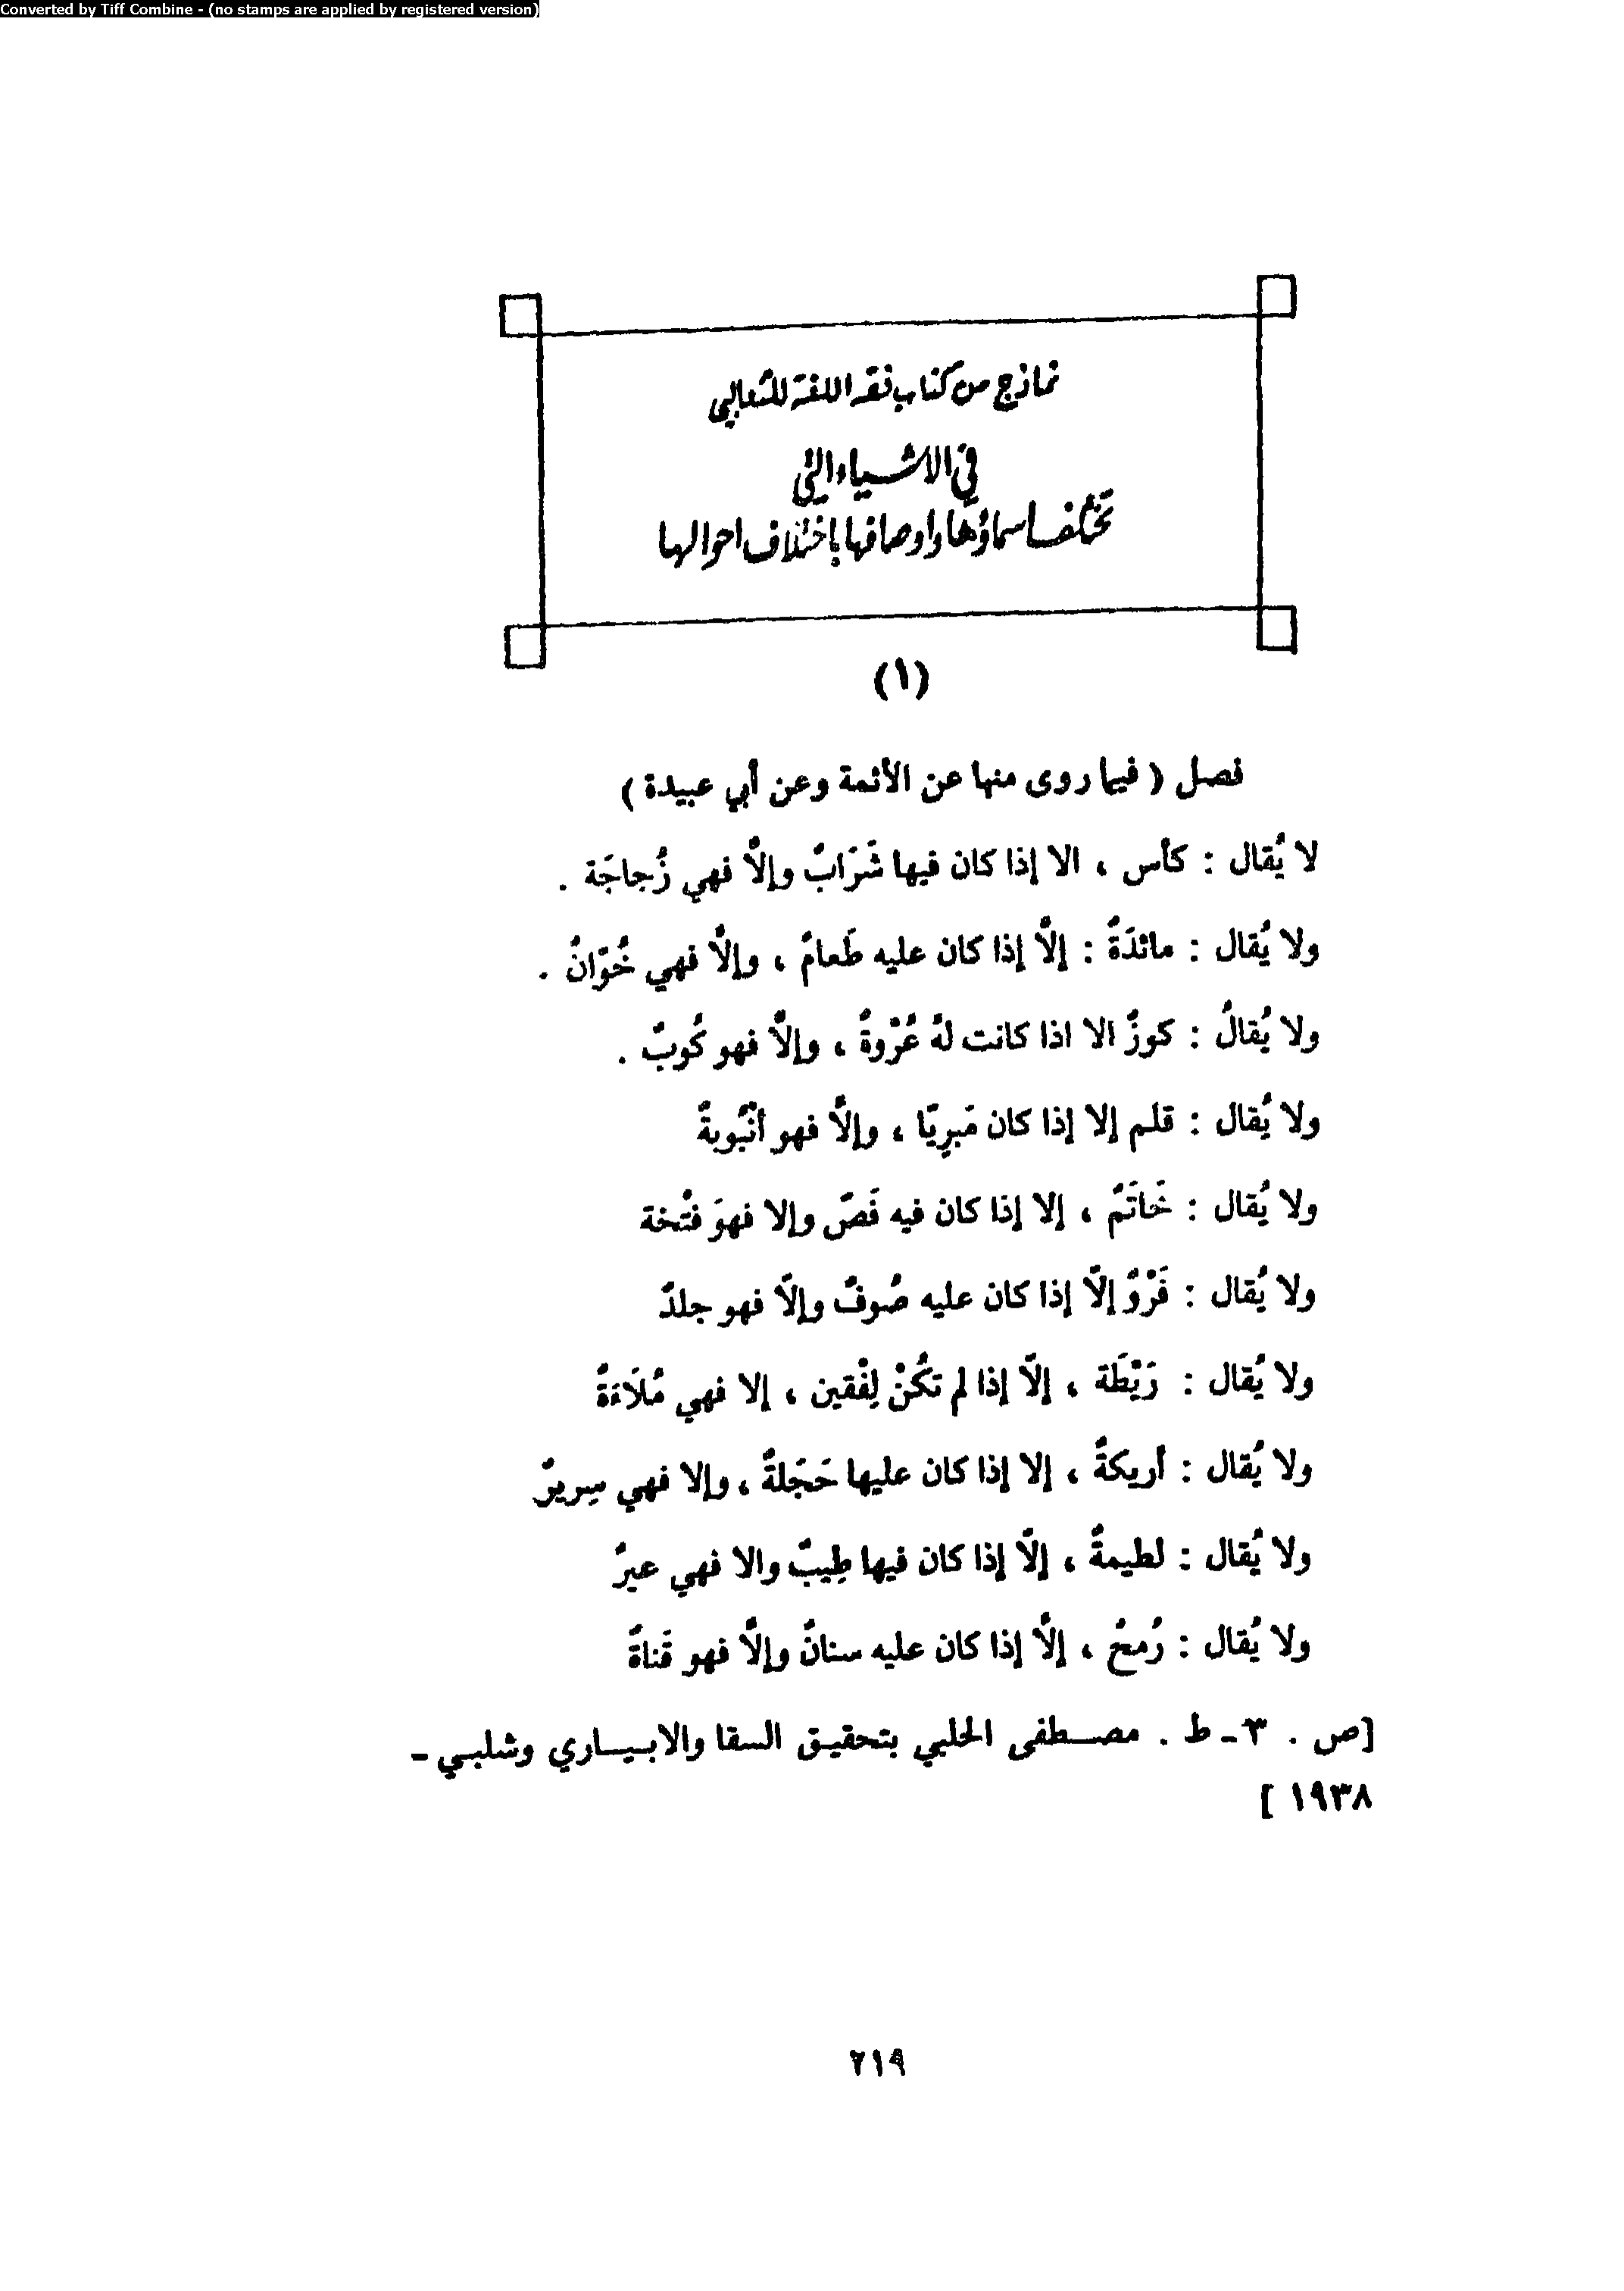 Converted by Tiff Combine - (no stamps are applied by registered version)
نماذج من كتاب فقه اللغة للثعالبي
في الاشياء التي
تختلف اسماؤها واوصافها باختلاف احوالها
(١)
فصل ( فيما روى منها عن الأئمة وعن أبي عبيدة )
لا يُقال : كأس ، الا إذا كان فيها شَرَابٌ وإلاَّ فهي زُجاجَة .
ولا يُقال : مائدَةٌ : إلاَّ إذا كان عليه طَعامٌ ، وإلاَّ فهي خُوَانٌ .
ولا يُقالُ : كوزٌ الا اذا كانت لهُ عُرْوةٌ ، وإلاَّ فهو كُوبٌ .
ولا يُقال : قلم إلا إذا كان مَبرِيًا ، وإلاَّ فهو أنْبُوبةٌ
ولا يُقال : خَاتَمٌ ، إلا إذا كان فيه فَصٌ وإلا فهوَ فتْخة
ولا يُقال : فَرْوٌ إلاَّ إذا كان عليه صُوفٌ وإلاَّ فهو جلدٌ
ولا يُقال : رَيْطَة ، إلاَّ إذا لم تكُنْ لِفْقين ، إلا فهي مُلاَءَةٌ
ولا يُقال : أريكةٌ ، إلا إذا كان عليها حَجَلةٌ ، وإلا فهي سِريرٌ
ولا يُقال : لطيمةٌ ، إلاَّ إذا كان فيها طِيبٌ والا فهي عيرٌ
ولا يُقال : رُمحٌ ، إلاَّ إذا كان عليه سنانٌ وإلاَّ فهو قَناةٌ
[ص . ٣ - ط . مصطفى الحلبي بتحقيق السقا والابياري وشلبي -
١٩٣٨ ]
٢١٩